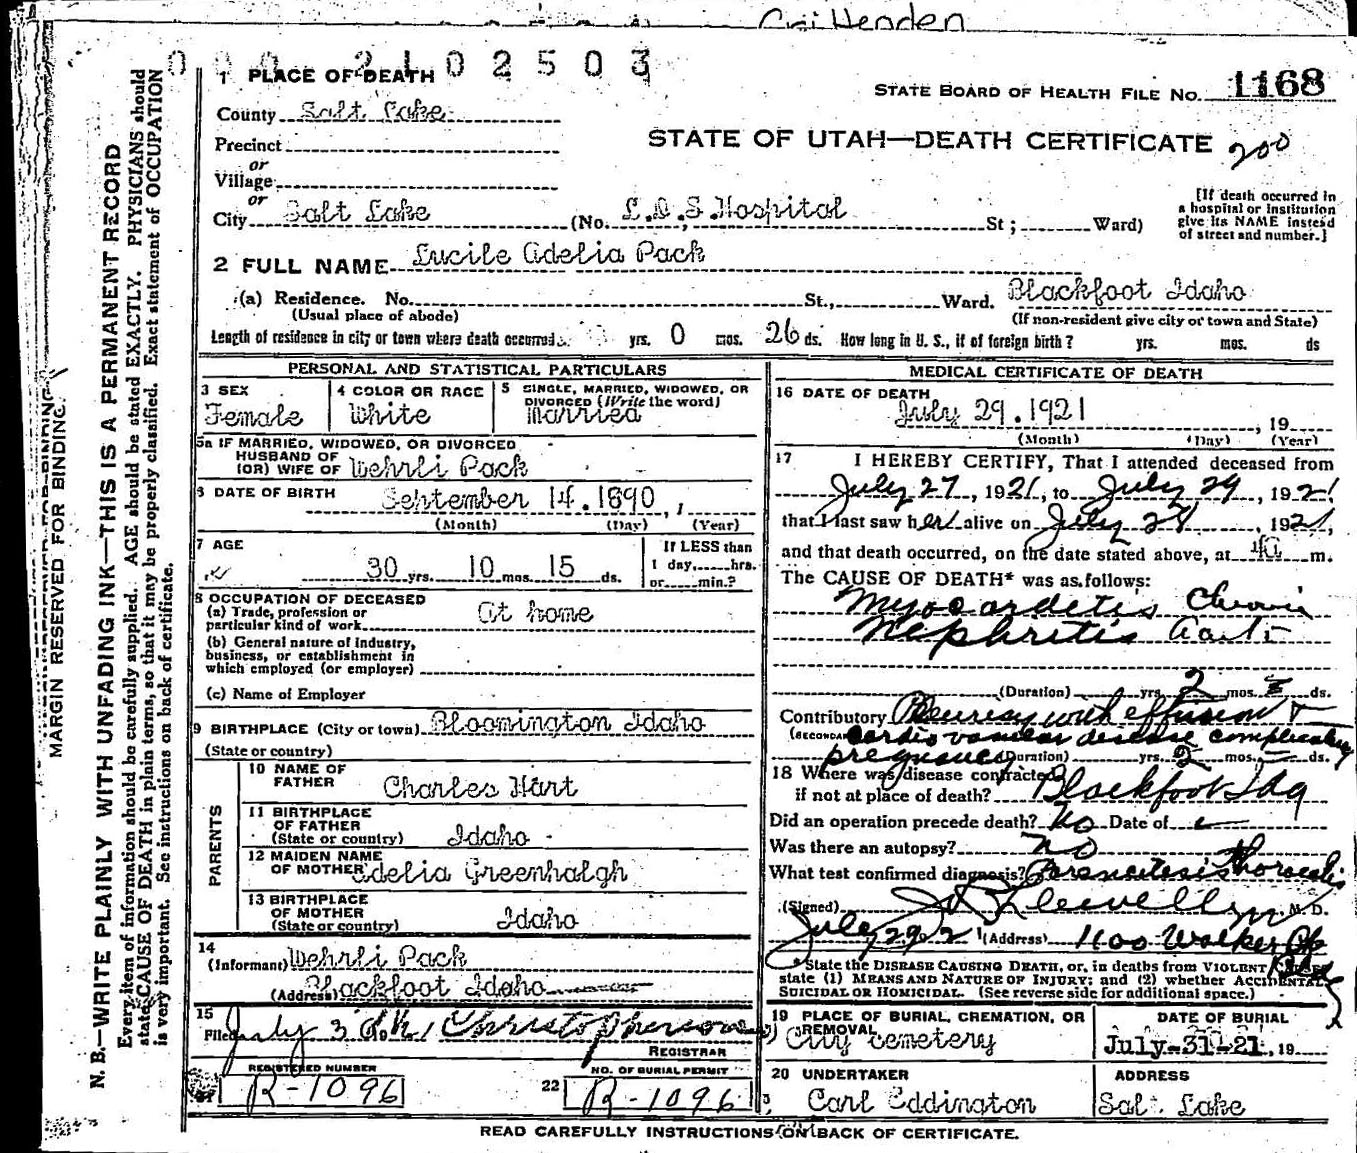 Crittenden
0002102503
1 PLACE OF DEATH
STATE BOARD OF HEALTH FILE No. 1168
County Salt Lake
STATE OF UTAH—DEATH CERTIFICATE 200
Precinct
or
Village
or
City Salt Lake (No. L.D.S. Hospital St; Ward)
[If death occurred in
a hospital or institution
give its NAME instead
of street and number.]
2 FULL NAME Lucile Adelia Pack
(a) Residence. No. St., Ward. Blackfoot Idaho
(Usual place of abode) (If non-resident give city or town and State)
Length of residence in city or town where death occurred yrs. 0 mos. 26 ds. How long in U. S., if of foreign birth? yrs. mos. ds
PERSONAL AND STATISTICAL PARTICULARS
3 SEX
Female
4 COLOR OR RACE
White
5 SINGLE, MARRIED, WIDOWED, OR
DIVORCED (Write the word)
Married
5a IF MARRIED, WIDOWED, OR DIVORCED
HUSBAND OF
(OR) WIFE OF Wehrli Pack
6 DATE OF BIRTH September 14. 1890,
(Month) (Day) (Year)
7 AGE
30 yrs. 10 mos. 15 ds.
If LESS than
1 day, hrs.
or min.?
8 OCCUPATION OF DECEASED
(a) Trade, profession or
particular kind of work At home
(b) General nature of industry,
business, or establishment in
which employed (or employer)
(c) Name of Employer
9 BIRTHPLACE (City or town) Bloomington Idaho
(State or country)
PARENTS
10 NAME OF
FATHER Charles Hart
11 BIRTHPLACE
OF FATHER
(State or country) Idaho
12 MAIDEN NAME
OF MOTHER Adelia Greenhalgh
13 BIRTHPLACE
OF MOTHER
(State or country) Idaho
14
(Informant) Wehrli Pack
(Address) Blackfoot Idaho
15
Filed July 30 Christopherson
REGISTRAR
REGISTERED NUMBER
21 R-1096
NO. OF BURIAL PERMIT
22 R-1096
MEDICAL CERTIFICATE OF DEATH
16 DATE OF DEATH
July 29. 1921, 19
(Month) (Day) (Year)
17 I HEREBY CERTIFY, That I attended deceased from
July 27, 1921, to July 29, 1921
that I last saw her alive on July 28, 1921,
and that death occurred, on the date stated above, at m.
The CAUSE OF DEATH* was as follows:
Myocarditis Chronic
Nephritis Acute
(Duration) yrs. 2 mos. ds.
Contributory Pleurisy with effusion +
(SECONDARY) Cardio vascular disease complicating
pregnancy (Duration) yrs. 2 mos. ds.
18 Where was disease contracted
if not at place of death? Blackfoot Ida
Did an operation precede death? No Date of
Was there an autopsy? No
What test confirmed diagnosis? Paracentesis thoracis
(Signed) Llewellyn M. D.
July 29 1921 (Address) 1100 Walker Bk
Bldg
*State the DISEASE CAUSING DEATH, or, in deaths from VIOLENT CAUSES
state (1) MEANS AND NATURE OF INJURY; and (2) whether ACCIDENTAL,
SUICIDAL OR HOMICIDAL. (See reverse side for additional space.)
19 PLACE OF BURIAL, CREMATION, OR
REMOVAL
City Cemetery
DATE OF BURIAL
July-31-21, 19
20 UNDERTAKER
Carl Eddington
ADDRESS
Salt Lake
READ CAREFULLY INSTRUCTIONS ON BACK OF CERTIFICATE.
MARGIN RESERVED FOR BINDING
N. B.—WRITE PLAINLY WITH UNFADING INK—THIS IS A PERMANENT RECORD
Every item of information should be carefully supplied. AGE should be stated EXACTLY. PHYSICIANS should
state CAUSE OF DEATH in plain terms, so that it may be properly classified. Exact statement of OCCUPATION
is very important. See instructions on back of certificate.